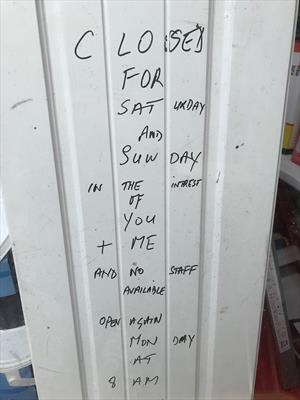 CLOSED
FOR
SATURDAY
AND
SUNDAY
IN THE INTREST
OF
YOU
+ ME
AND NO STAFF
AVAILABLE
OPEN AGAIN
MONDAY
AT
8 AM